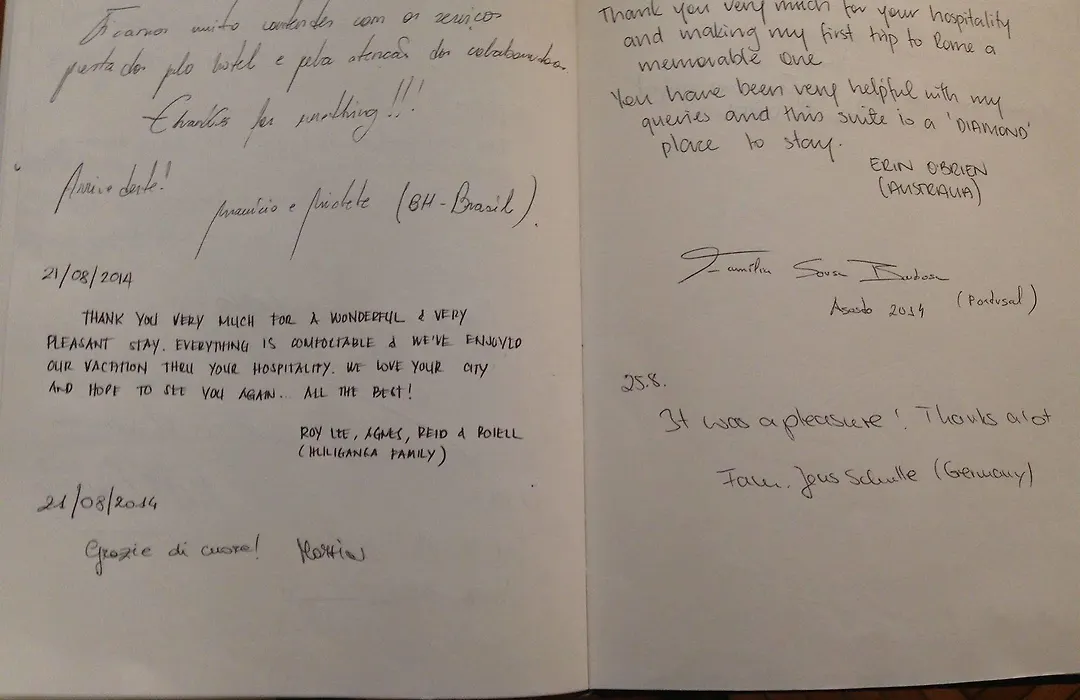 Ficamos muito contentes com os serviços
prestados pelo hotel e pela atenção dos colaboradores.
Thanks for everything!!!
Arrivederte!
Mauricio e (BH-Brasil).
21/08/2014
THANK YOU VERY MUCH FOR A WONDERFUL & VERY
PLEASANT STAY. EVERYTHING IS COMFORTABLE & WE'VE ENJOYED
OUR VACATION THRU YOUR HOSPITALITY. WE LOVE YOUR CITY
AND HOPE TO SEE YOU AGAIN... ALL THE BEST!
ROY LEE, AGNES, REID &
(HULIGANGA FAMILY)
21/08/2014
Grazie di cuore!
Thank you very much for your hospitality
and making my first trip to Rome a
memorable one
You have been very helpful with my
queries and this suite is a 'DIAMOND'
place to stay.
ERIN O'BRIEN
(AUSTRALIA)
Família Sousa Barbosa
Agosto 2014 (Portugal)
25.8.
It was a pleasure! Thanks a lot
Fam. Jens Schulle (Germany)